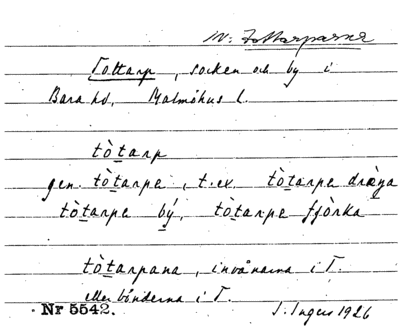 IV: Tottarparna
Tottarp, socken och by i
Bara hd, Malmöhus l.
tòtarp
gen. tòtarpe, t.ex. tòtarpe dræ̀ga
tòtarpe bý, tòtarpe fjòrka
tòtarpana, invånarna i T.
eller bönderna i T.
Nr 5542. I. Ingers 1926